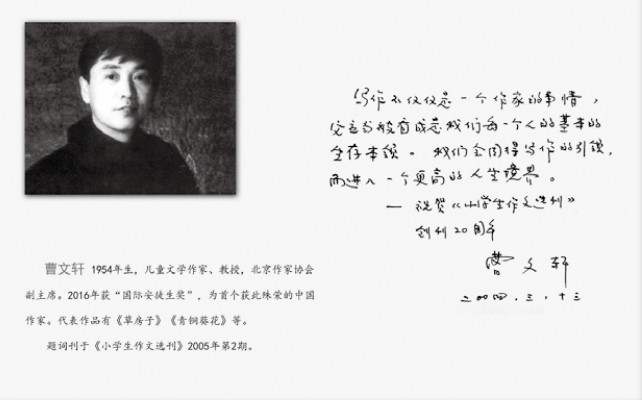 写作不仅仅是一个作家的事情，
它应当被看成是我们每一个人的基本的
生存本领。我们会因得写作的引领，
而进入一个更高的人生境界。
— 祝贺《小学生作文选刊》
创刊20周年
曹文轩
二〇〇四.三.十三
曹文轩 1954年生，儿童文学作家、教授，北京作家协会
副主席。2016年获“国际安徒生奖”，为首个获此殊荣的中国
作家。代表作品有《草房子》《青铜葵花》等。
题词刊于《小学生作文选刊》2005年第2期。